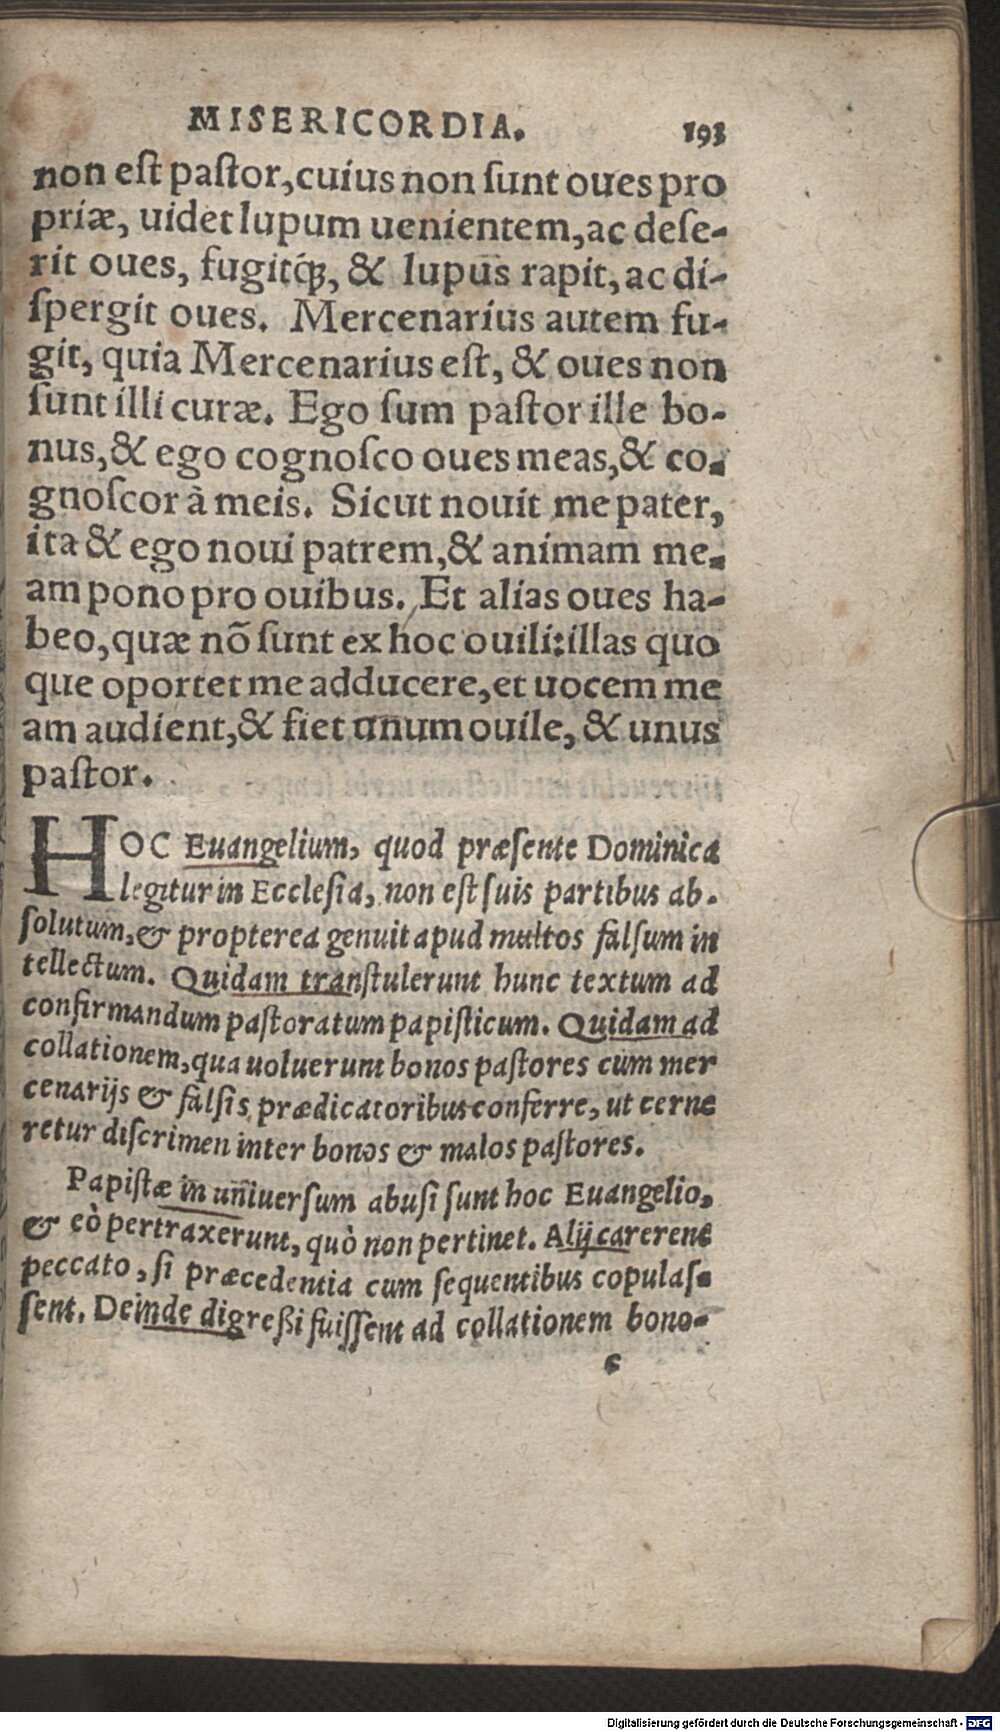 MISERICORDIA. 193
non est pastor, cuius non sunt oues pro
priæ, uidet lupum uenientem, ac dese-
rit oues, fugitq́;, & lupus rapit, ac di-
spergit oues. Mercenarius autem fu-
git, quia Mercenarius est, & oues non
sunt illi curæ. Ego sum pastor ille bo-
nus, & ego cognosco oues meas, & co-
gnoscor à meis. Sicut nouit me pater,
ita & ego noui patrem, & animam me-
am pono pro ouibus. Et alias oues ha-
beo, quæ nõ sunt ex hoc ouili: illas quo
que oportet me adducere, et uocem me
am audient, & fiet unum ouile, & unus
pastor.
HOC Euangelium, quod præsente Dominica
legitur in Ecclesia, non est suis partibus ab-
solutum, & propterea genuit apud multos falsum in
tellectum. Quidam transtulerunt hunc textum ad
confirmandum pastoratum papisticum. Quidam ad
collationem, qua uoluerunt bonos pastores cum mer
cenarijs & falsis prædicatoribus conferre, ut cerne
retur discrimen inter bonos & malos pastores.
Papistæ in uniuersum abusi sunt hoc Euangelio,
& eò pertraxerunt, quò non pertinet. Alij carerent
peccato, si præcedentia cum sequentibus copulas-
sent. Deinde digreßi fuissent ad collationem bono-
c
Digitalisierung gefördert durch die Deutsche Forschungsgemeinschaft - DFG